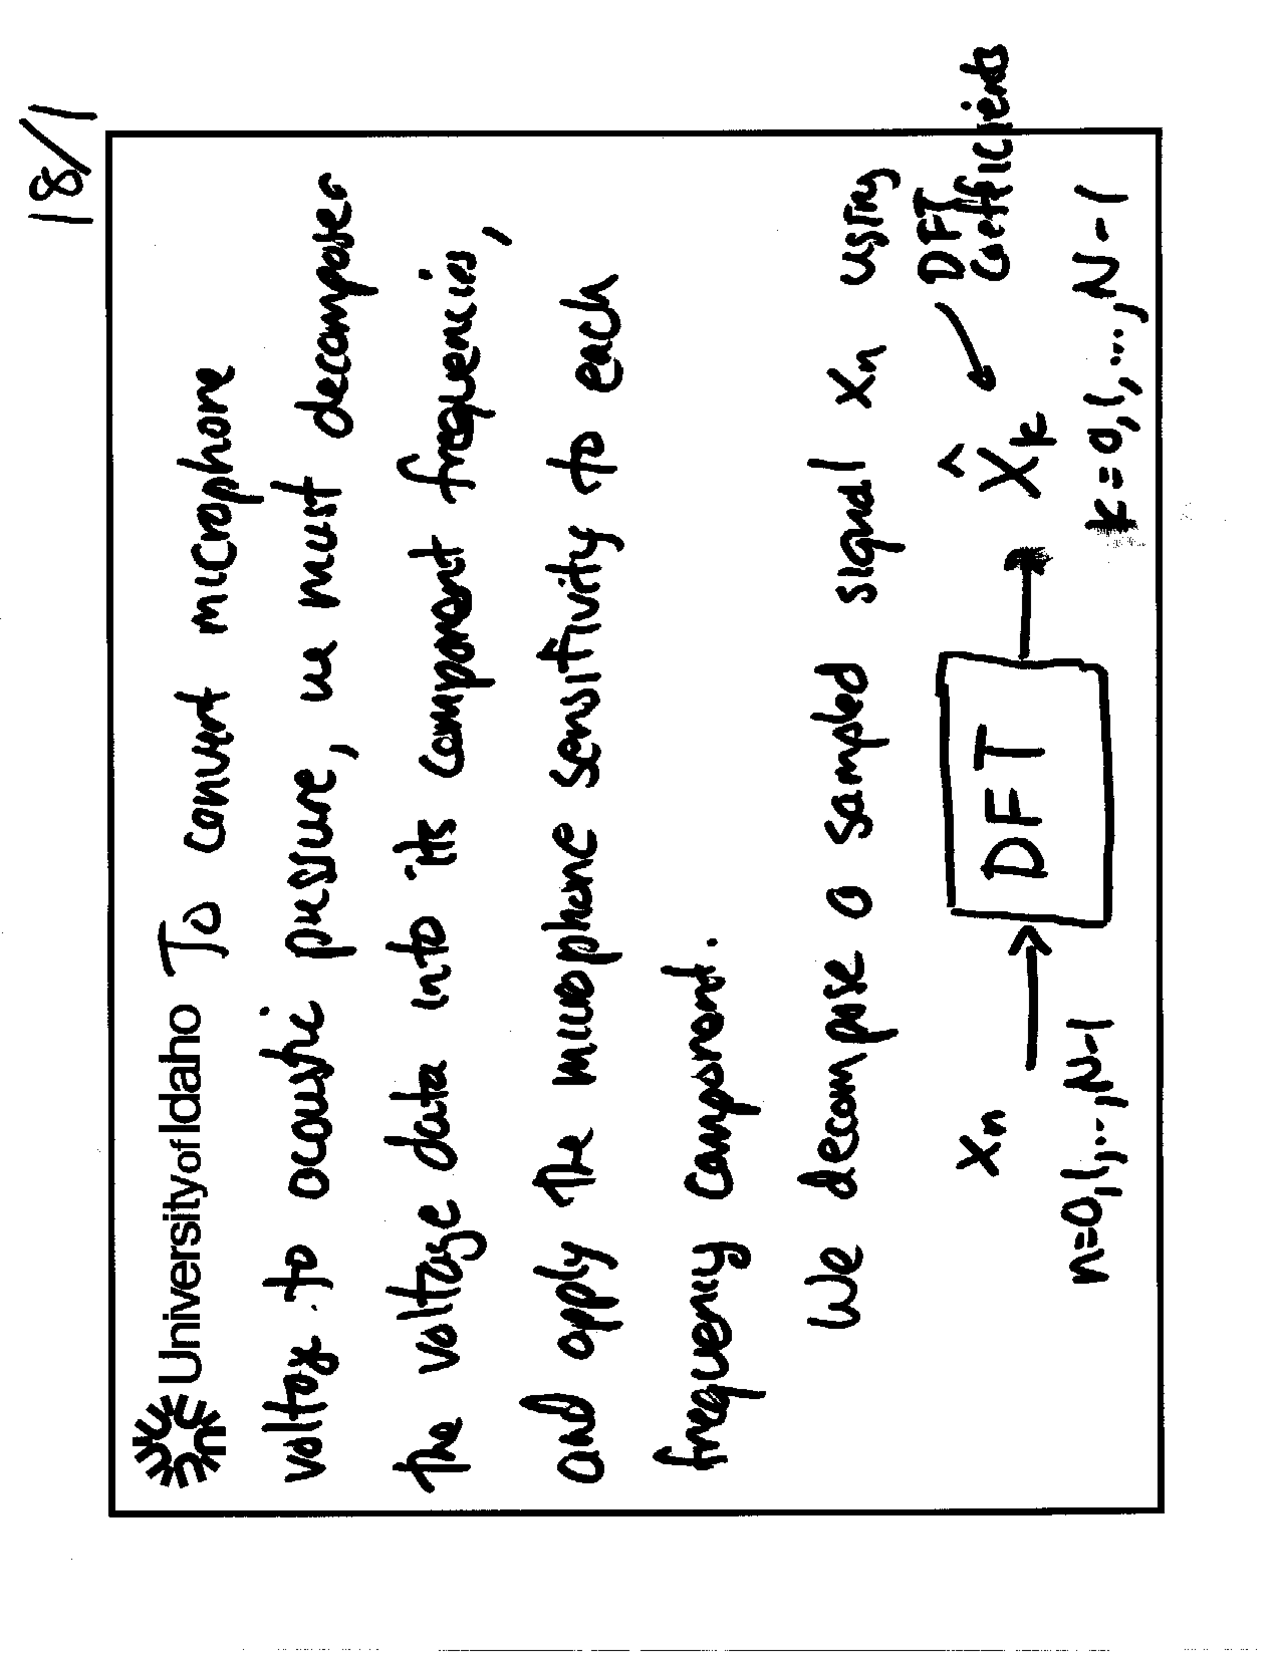 18/1
University of Idaho To convert microphone
voltage to acoustic pressure, we must decompose
the voltage data into its component frequencies,
and apply the microphone sensitivity to each
frequency component.
We decompose a sampled signal Xn using
DFT
coefficients
Xn → DFT → X̂k
n=0,1,...,N-1 k=0,1,...,N-1